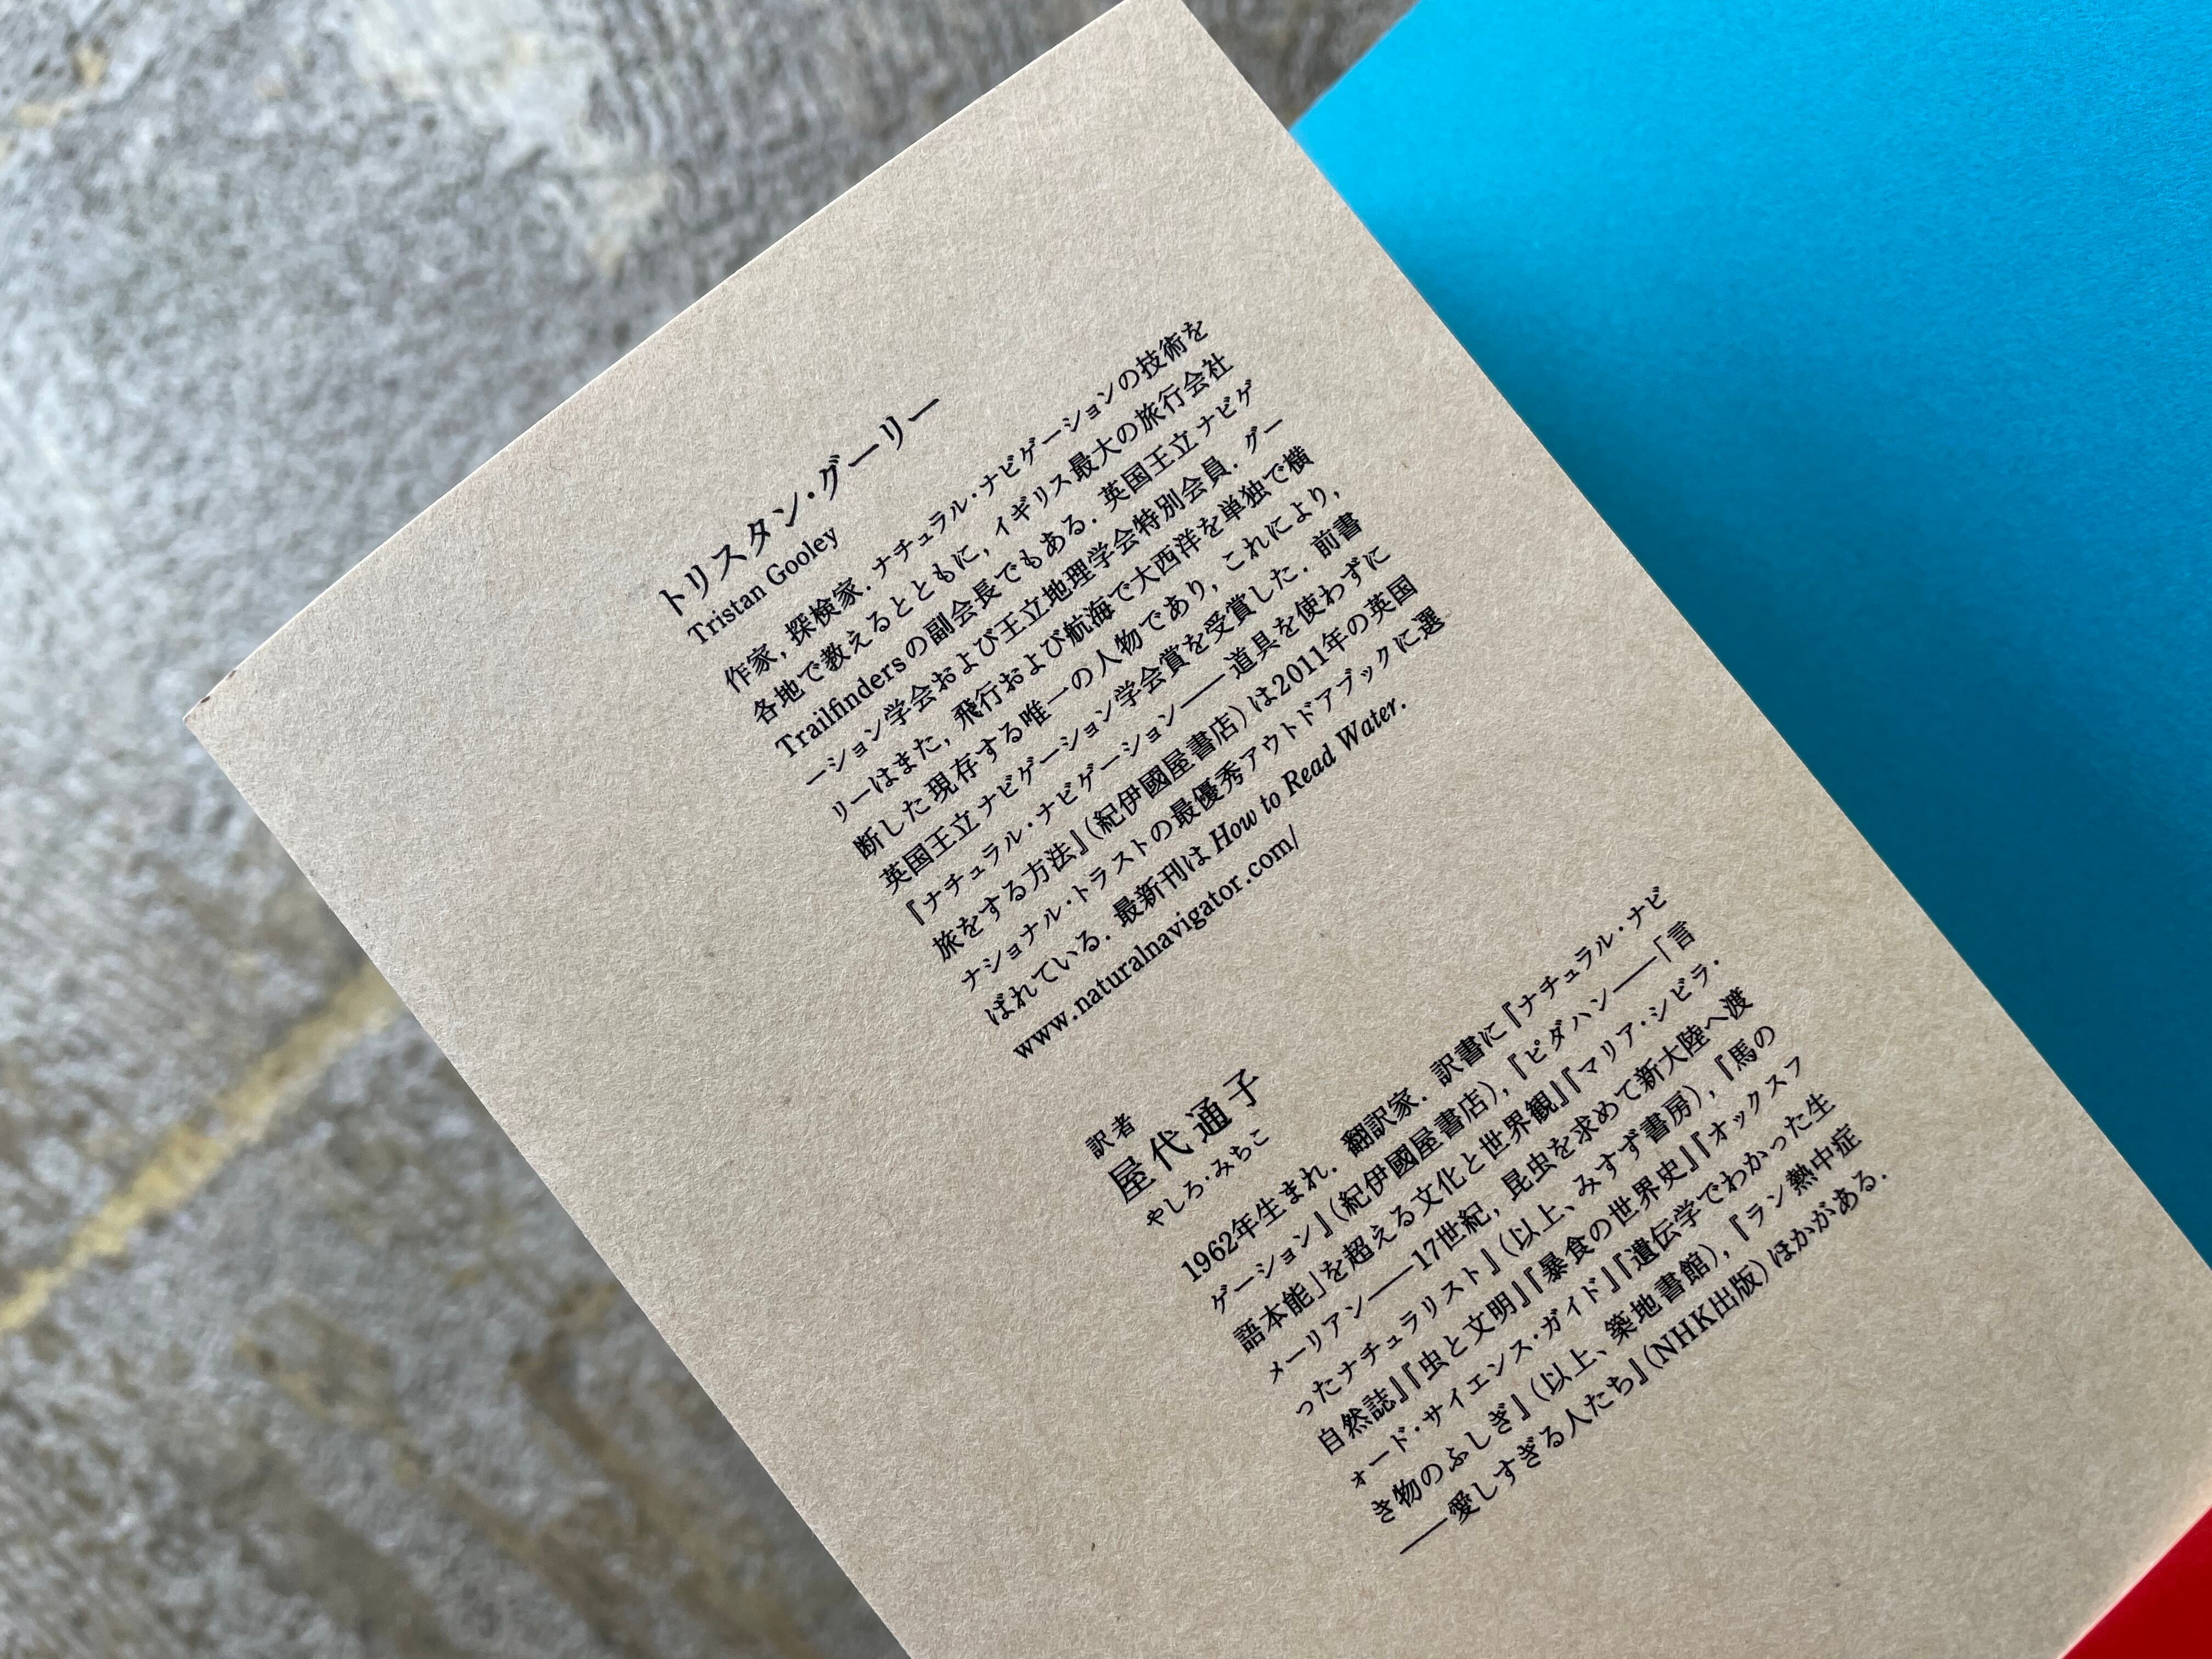 トリスタン・グーリー
Tristan Gooley
作家，探検家．ナチュラル・ナビゲーションの技術を
各地で教えるとともに，イギリス最大の旅行会社
Trailfindersの副会長でもある．英国王立ナビゲ
ーション学会および王立地理学会特別会員．グー
リーはまた，飛行および航海で大西洋を単独で横
断した現存する唯一の人物であり，これにより，
英国王立ナビゲーション学会賞を受賞した．前書
『ナチュラル・ナビゲーション――道具を使わずに
旅をする方法』（紀伊國屋書店）は2011年の英国
ナショナル・トラストの最優秀アウトドアブックに選
ばれている．最新刊は How to Read Water.
www.naturalnavigator.com/
訳者
屋代通子
やしろ・みちこ
1962年生まれ．翻訳家．訳書に『ナチュラル・ナビ
ゲーション』（紀伊國屋書店），『ピダハン――「言
語本能」を超える文化と世界観』『マリア・シビラ・
メーリアン――17世紀，昆虫を求めて新大陸へ渡
ったナチュラリスト』（以上、みすず書房），『馬の
自然誌』『虫と文明』『暴食の世界史』『オックスフ
ォード・サイエンス・ガイド』『遺伝学でわかった生
き物のふしぎ』（以上、築地書館），『ラン熱中症
――愛しすぎる人たち』（NHK出版）ほかがある．